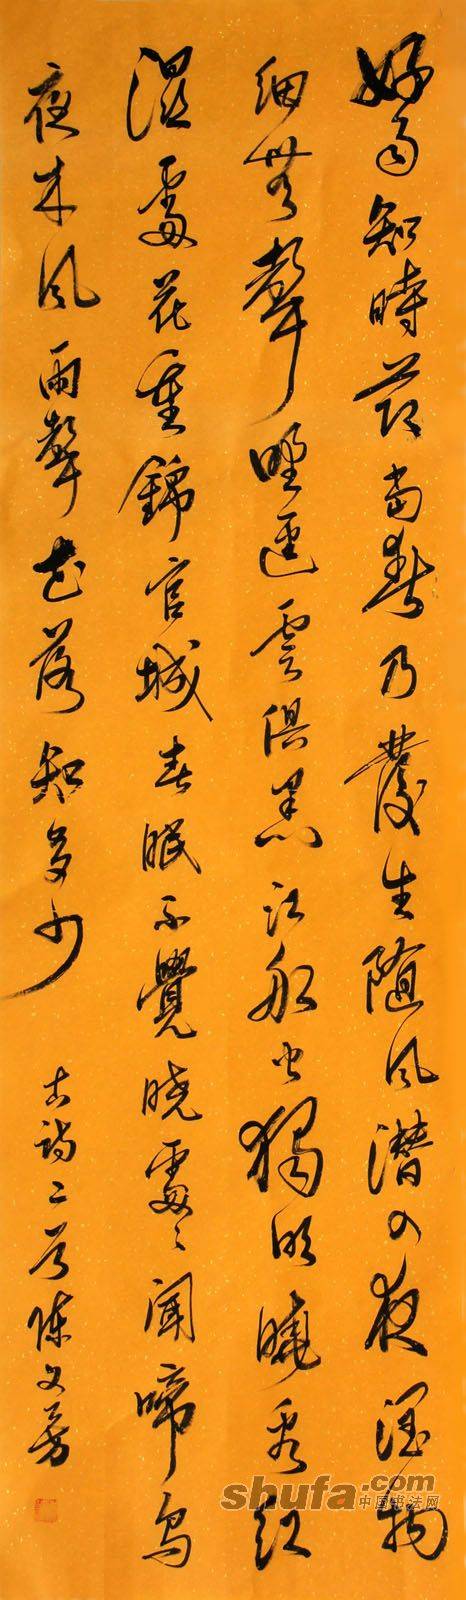 好雨知時節當春乃發生随风潛入夜潤物
細無聲野逕雲俱黑江船火獨明曉看红
濕處花重錦官城春眠不覺曉處處聞啼鸟
夜来风雨聲花落知多少
古诗二首陈文芳
shufa.com
中国书法网